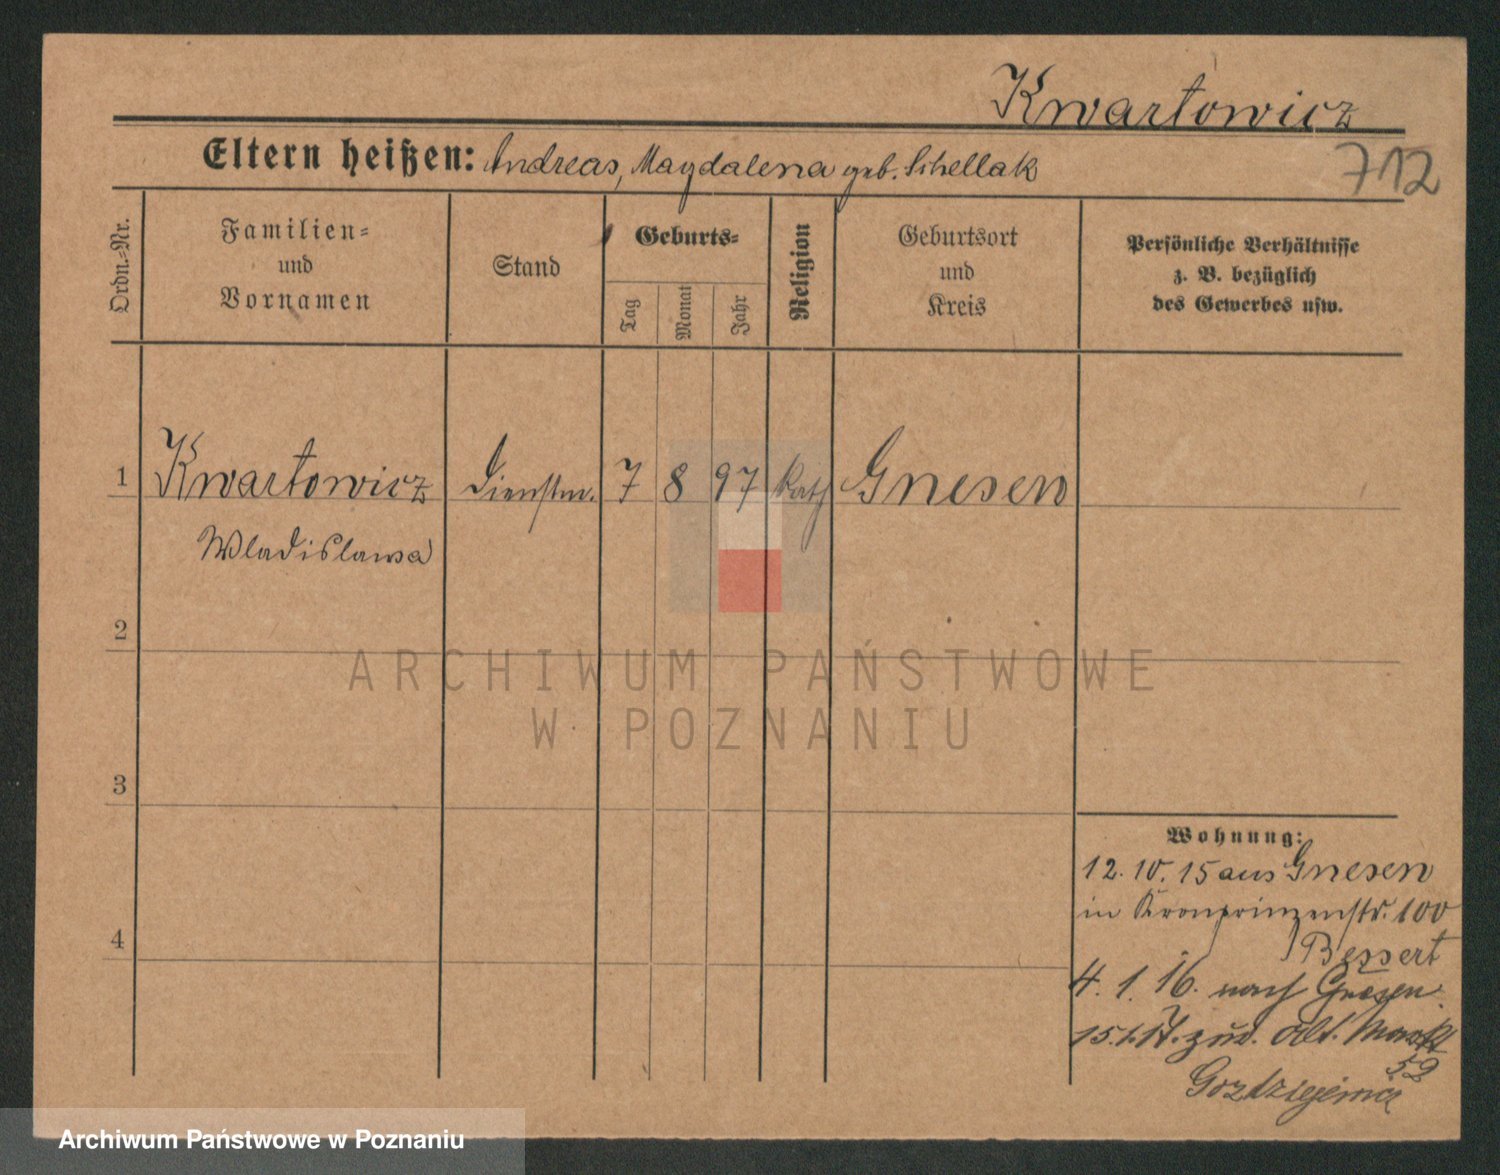 Kwartowicz
Eltern heißen: Andreas, Magdalena geb. Schellak
712
Ordn.-Nr.
Familien-
und
Vornamen
Stand
Geburts-
Tag
Monat
Jahr
Religion
Geburtsort
und
Kreis
Persönliche Verhältnisse
z. B. bezüglich
des Gewerbes usw.
1 Kwartowicz Dienstm. 7 8 97 kath Gnesen
Wladislawa
2
ARCHIWUM PAŃSTWOWE
W POZNANIU
3
Wohnung:
12. 10. 15 aus Gnesen
in Kronprinzenstr. 100
Bessert
4
4. 1. 16. nach Gnesen.
15.1.17. zur. Alt. Markt
52
Archiwum Państwowe w Poznaniu